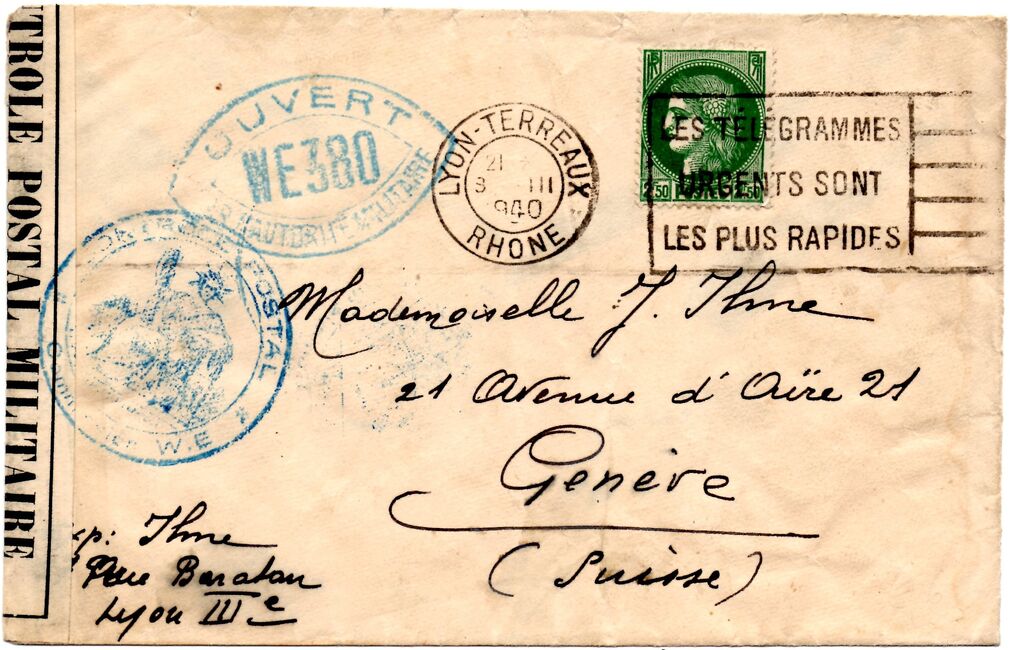 TROLE POSTAL MILITAIRE
OUVERT
WE380
AUTORITÉ MILITAIRE
POSTAL
W.E
LYON-TERREAUX
21
3 III
1940
RHONE
2,50 50
LES TÉLÉGRAMMES
URGENTS SONT
LES PLUS RAPIDES
Mademoiselle J. Ihne
21 Avenue d'Aïre 21
Genève
(Suisse)
xp: Ihne
Rue Baraban
Lyon IIIe